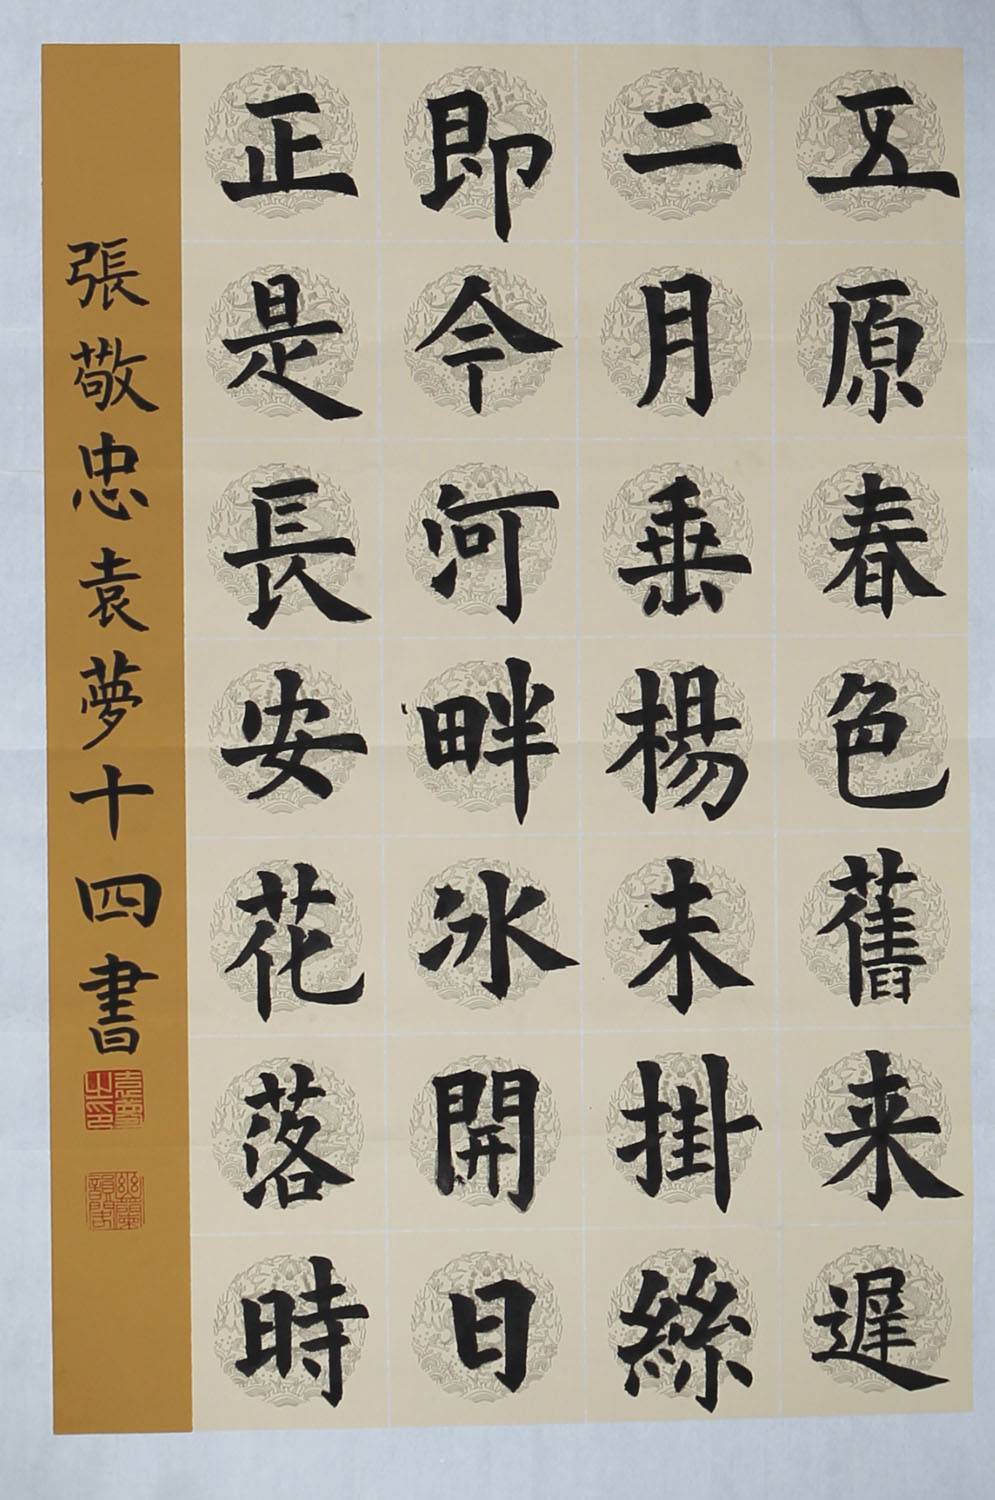 五原春色舊来遲
二月垂楊未掛絲
即今河畔冰開日
正是長安花落時
張敬忠袁夢十四書
袁夢之印